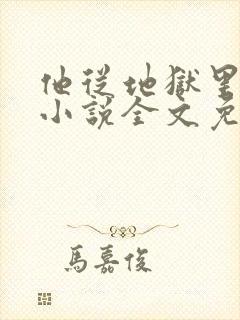 他從地獄里
小說全文免
馬嘉俊